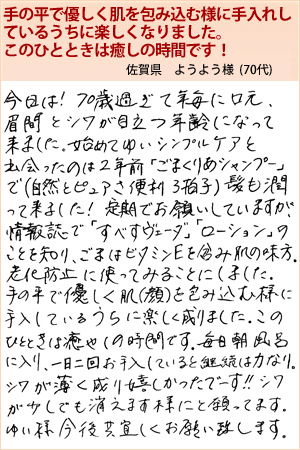 手の平で優しく肌を包み込む様に手入れし
ているうちに楽しくなりました。
このひとときは癒しの時間です！
佐賀県　ようよう様 (70代)
今日は！70歳過ぎて年毎に口元、
眉間とシワが目立つ年齢になって
来ました。始めてゆいシンプルケアと
出会ったのは2年前「ごまくりぬシャンプー」
で(自然とピュアさ便利3拍子)髪も潤
って来ました！定期でお願いしていますが、
情報誌で「すべすヴェーダ」「ローション」の
ことを知り、ごまはビタミンEを含み肌の味方。
老化防止に使ってみることにしました。
手の平で優しく肌(顔)を包み込む様に
手入しているうちに楽しく成りました。この
ひとときは癒やしの時間です。毎日朝風呂
に入り、一日二回お手入していると継続は力なり。
シワが薄く成り嬉しかったでーす!!シワ
が少しでも消えます様にと願ってます。
ゆい様今後共宜しくお願い致します。